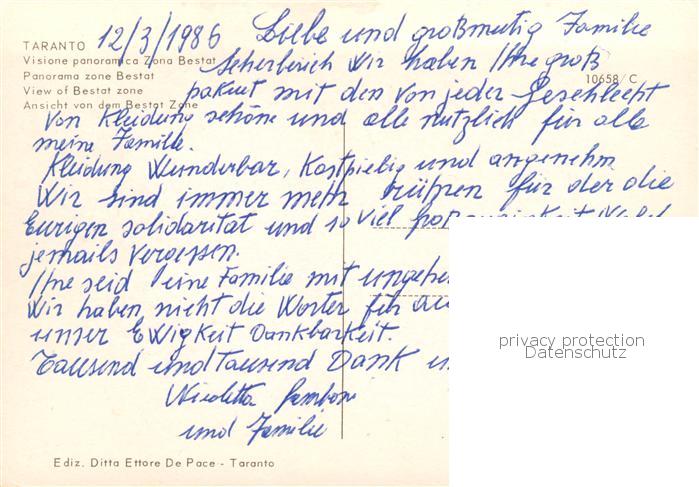 12/3/1986 Liebe und großmutig Familie
TARANTO
Visione panoramica Zona Bestat
Scherberich Wir haben Ihre groß
Panorama zone Bestat
10658/C
View of Bestat zone
paket mit den von jeder Geschlecht
Ansicht von dem Bestat Zone
Von Kleidung schöne und alle nutzlich für alle
meine Familie.
Kleidung Wunderbar, Kostpielig und angenehm
Wir sind immer mehr für der die
Eurigen solidarität und so viel
jemals vergessen.
Ihre seid eine Familie mit
Wir haben nicht die Worter für
unser EWigkeit Dankbarkeit.
Tausend und Tausend Dank
Nicoletta
und Familie
privacy protection
Datenschutz
Ediz. Ditta Ettore De Pace - Taranto